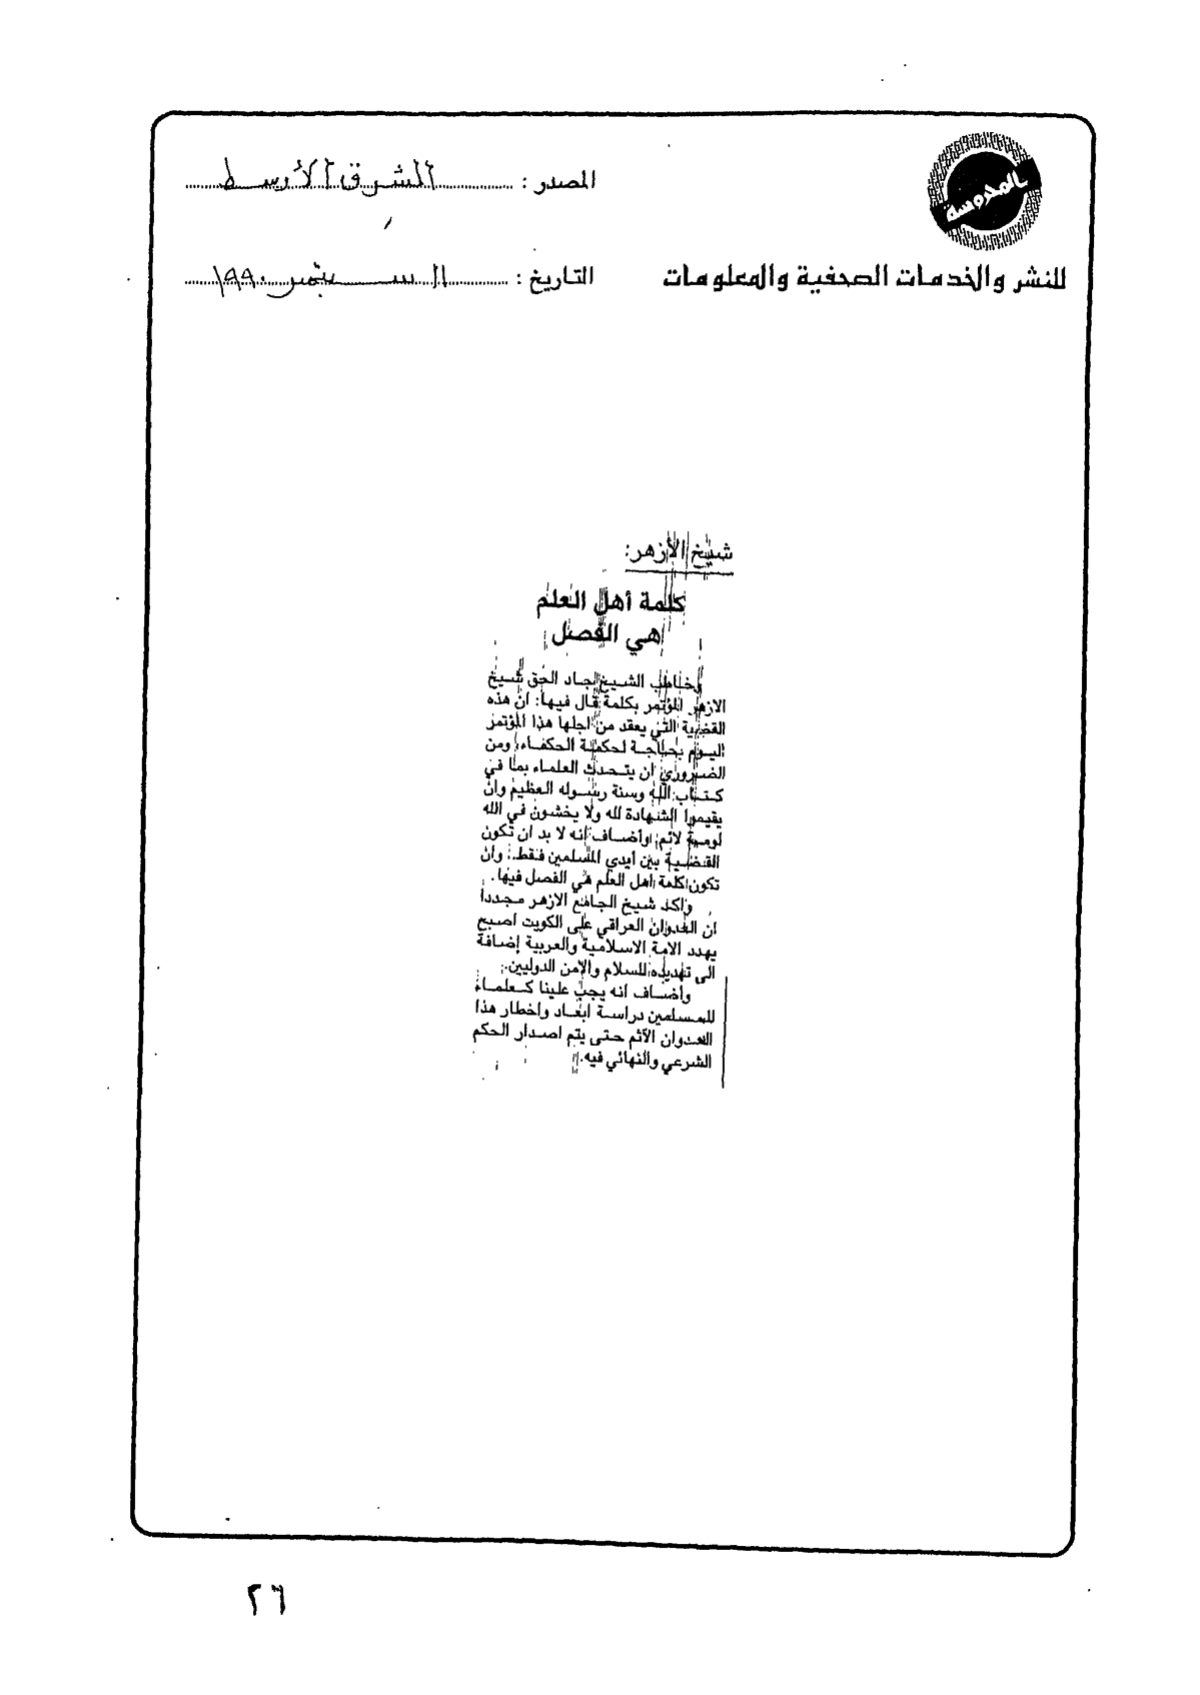 المحروسة
للنشر والخدمات الصحفية والمعلومات
المصدر : الشرق الأوسط
التاريخ : ١١ سبتمبر ١٩٩٠
شيخ الأزهر:
كلمة أهل العلم
هي الفصل
وخاطب الشيخ جاد الحق شيخ
الازهر المؤتمر بكلمة قال فيها: ان هذه
القضية التي يعقد من اجلها هذا المؤتمر
اليوم بحاجة لحكمة الحكماء، ومن
الضروري ان يتحدث العلماء بما في
كتاب الله وسنة رسوله العظيم وان
يقيموا الشهادة لله ولا يخشون في الله
لومة لائم، واضاف انه لا بد ان تكون
القضية بين ايدي المسلمين فقط. وان
تكون كلمة اهل العلم هي الفصل فيها.
واكد شيخ الجامع الازهر مجددا
ان العدوان العراقي على الكويت اصبح
يهدد الامة الاسلامية والعربية إضافة
الى تهديده للسلام والامن الدوليين.
وأضاف انه يجب علينا كعلماء
للمسلمين دراسة ابعاد واخطار هذا
العدوان الآثم حتى يتم اصدار الحكم
الشرعي والنهائي فيه.
٢٦